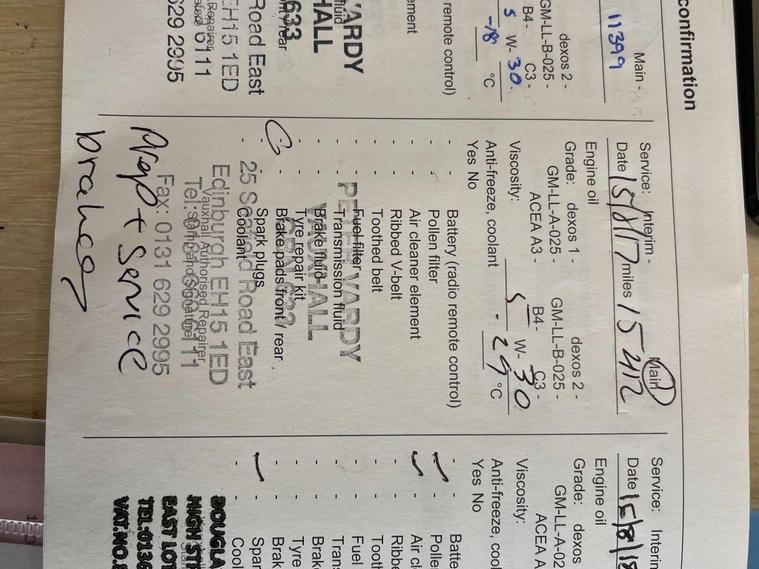 confirmation
Main -
11399
dexos 2 -
GM-LL-B-025 -
B4- C3 -
5 W- 30
-18 °C
remote control)
ement
VARDY
HALL
633
Road East
EH15 1ED
6111
629 2995
Service: Interim - Main
Date 15/8/17 miles 15412
Engine oil
Grade: dexos 1 - dexos 2 -
GM-LL-A-025 - GM-LL-B-025 -
ACEA A3 - B4- C3 -
Viscosity: 5 W- 30
Anti-freeze, coolant - 29 °C
Yes No
- - Battery (radio remote control)
- - Pollen filter
- - Air cleaner element
- - Ribbed V-belt
- - Toothed belt
- - Fuel filter
- - Transmission fluid
- - Brake fluid
- - Tyre repair kit
- - Brake pads front / rear
- - Spark plugs
- - Coolant
VARDY
VAUXHALL
Road East
Edinburgh EH15 1ED
Vauxhall Authorised Repairer
Tel:
Fax: 0131 629 2995
Service
Service: Interim
Date 15/8/18
Engine oil
Grade: dexos
GM-LL-A-02
ACEA A
Viscosity:
Anti-freeze, cool
Yes No
- - Batte
- - Polle
- - Air cl
- - Ribbe
- - Tooth
- - Fuel
- - Trans
- - Brake
- - Tyre
- - Brak
- - Spar
- - Cool
DOUGLA
HIGH STR
EAST LOT
TEL:0136
VAT.NO.